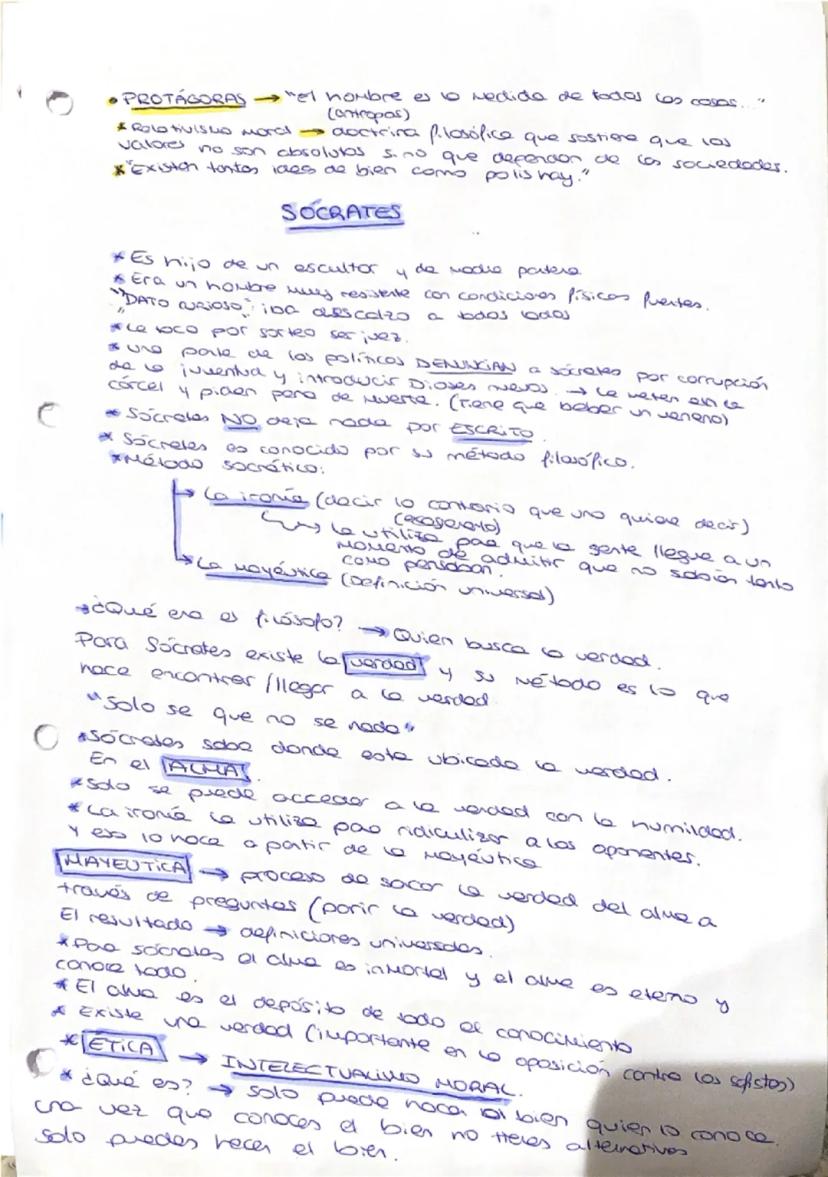 • PROTÁGORAS → "el hombre es la medida de todas las cosas..."
(antropos)
* Relativismo moral → doctrina filosófica que sostiene que los
valores no son absolutos sino que dependen de las sociedades.
* "Existen tantas ideas de bien como polis hay."
SÓCRATES
* Es hijo de un escultor y de madre partera
* Era un hombre muy resistente con condiciones físicas fuertes.
"DATO CURIOSO": iba descalzo a todos lados
* Le toco por sorteo ser juez.
* una parte de los políticos DENUNCIAN a sócrates por corrupción
de la juventud y introducir Dioses nuevos. → Le meten en la
cárcel y piden pena de muerte. (Tiene que beber un veneno)
* Sócrates NO deja nada por ESCRITO.
* Sócrates es conocido por su método filosófico.
* Método socrático:
→ La ironía (decir lo contrario que uno quiere decir)
(exagerando)
→ La utiliza para que la gente llegue a un
momento de admitir que no sabían tanto
como pensaban.
→ La mayéutica (Definición universal)
* ¿Qué era el filósofo? → Quien busca la verdad.
Para Sócrates existe la verdad y su método es lo que
hace encontrar/llegar a la verdad
"Solo se que no se nada"
* Sócrates sabe donde esta ubicada la verdad.
En el ALMA.
* Solo se puede acceder a la verdad con la humildad.
* La ironía la utiliza para ridiculizar a los oponentes.
Y eso lo hace a partir de la mayéutica
MAYEUTICA → proceso de sacar la verdad del alma a
través de preguntas (parir la verdad)
El resultado → definiciones universales.
* Para sócrates el alma es inmortal y el alma es eterno y
conoce todo.
* El alma es el depósito de todo el conocimiento
* Existe una verdad (importante en la oposición contra los sofistas)
* ÉTICA → INTELECTUALISMO MORAL.
* ¿Qué es? → Solo puede hacer el bien quien lo conoce.
una vez que conoces el bien no tienes alternativas
solo puedes hacer el bien.